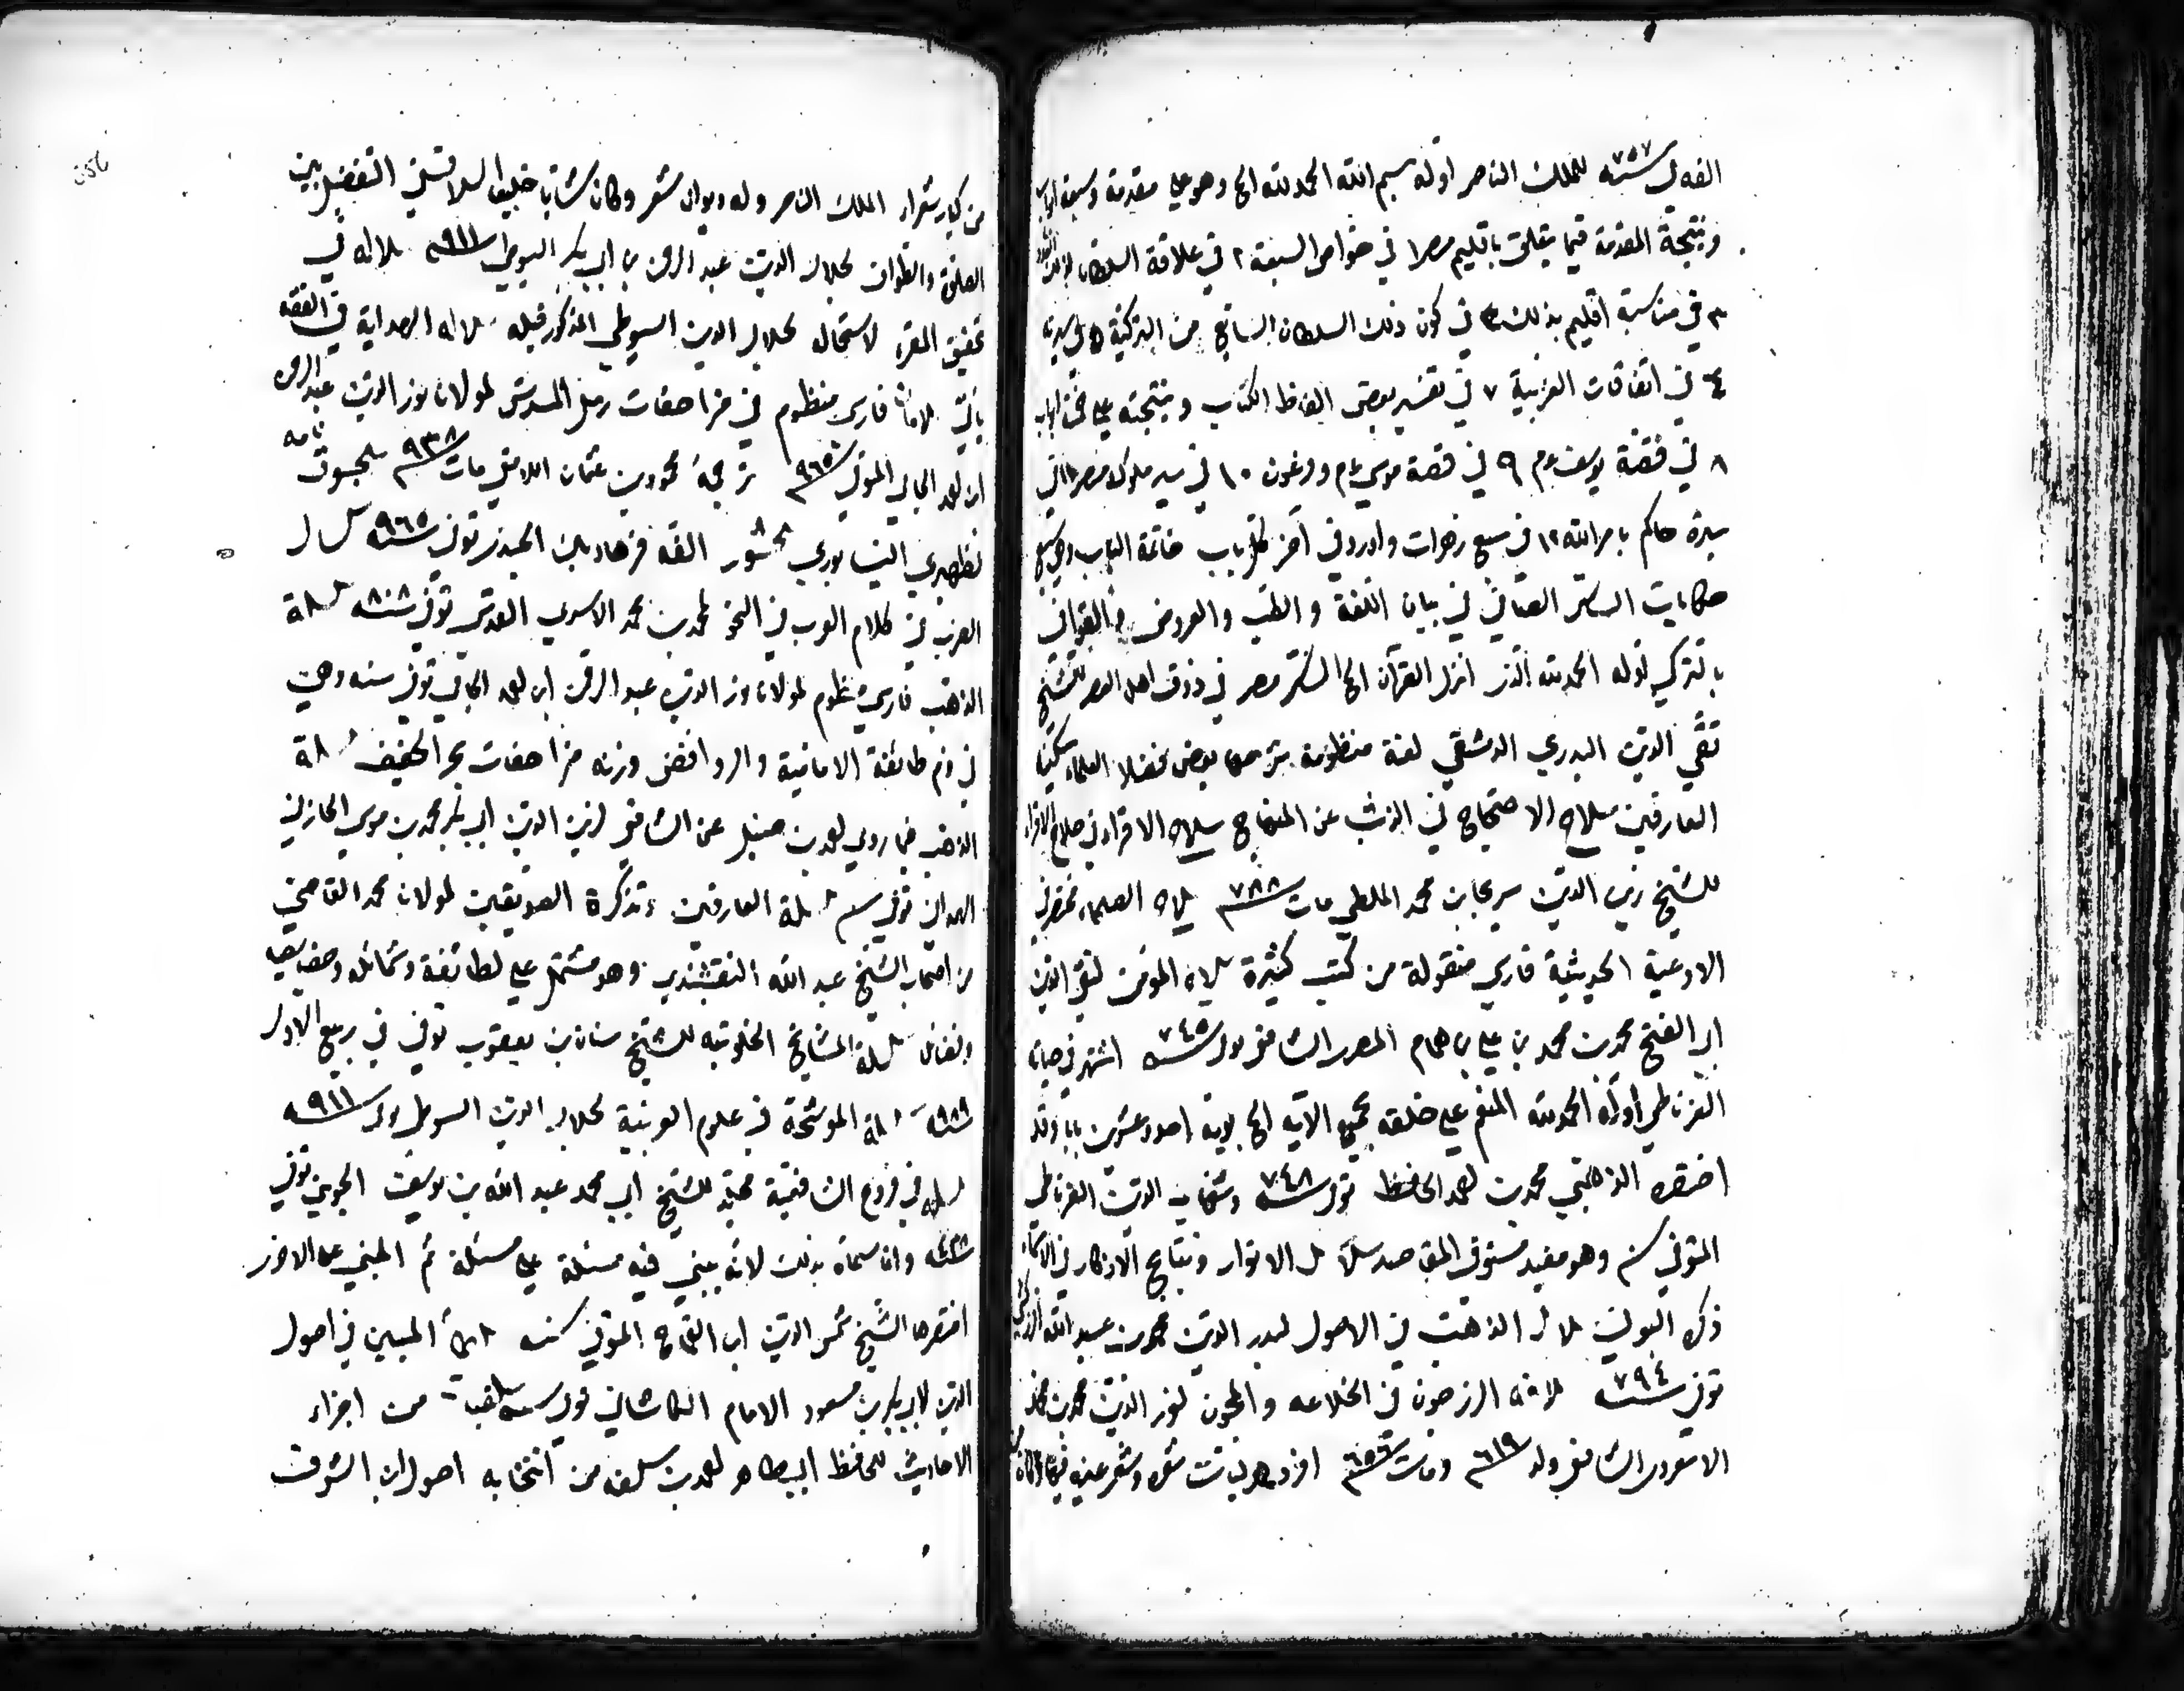 الفه في سنه ٧٥٧ للملك الناصر اوله بسم الله الحمد لله الخ وهو على مقدمة وسبعة ابواب
ونتيجة المقدمة فيما يتعلق باقليم مصر ١ في خواص السبعة ٢ في علاقة السلطان
٣ في مناسبة اقليم بذلك ٤ في كون ذلك السلطان السابع من التركية ٥ في سيرته
٦ في اتفاقات الغريبة ٧ في تفسير بعض الفاظ الكتاب ونتيجته على خمسة ابواب
٨ في قصة يوسف عم ٩ في قصة موسى عم وفرعون ١٠ في سير ملوك مصر ١١ في
سيرة حاكم بامر الله ١٢ في سبع زهرات واورد في آخر كل باب خاتمة الباب وهي سبع
حكايات السكر الصافي في بيان اللغة والطب والعروض والقوافي
بالتركي اوله الحمد لله الذي انزل القرآن الخ السكر مصر في ذوق اهل العصر للشيخ
تقي الدين البدري الدمشقي لغة منظومة بعض فضلا العلماء سكينة
العارفين سلاح الاحتجاج في الذب عن المنهاج سلاح الاقراء في صلاح الاقراء
للشيخ زين الدين سريجا بن محمد الملطي مات ٧٨٨ سلاح الصلحاء مختصر في
الادعية الحديثية فارسي منقولة من كتب كثيرة سلاح المؤمن لتقي الدين
ابي الفتح محمد بن محمد بن علي بن همام المصري الشافعي توفي سنه ٧٤٥ اشتهر في حياته
الغرناطي اوله الحمد لله المنعم على خلقه بجميع الآيه الخ بوبه احد وعشرين بابا وقد
اختصره الذهبي محمد بن احمد الحافظ توفي سنه ٧٤٨ وشهاب الدين الغرناطي
المتوفى سنه وهو مفيد مستوفي المقاصد سلاسل الانوار ونتايج الاذكار في الاسماء
ذكره البوني سلاسل الذهب في الاصول لبدر الدين محمد بن عبد الله الزركشي
توفي سنه ٧٩٤ سلافة الزرجون في الخلاعه والمجون لنور الدين محمد بن محمد
الاسعردي الشافعي ولد ٦١٩ ومات ٦٥٦ افرد هزليات شعره وشعر غيره فيها وكان
من كبار شعراء الملك الناصر وله ديوان شعر وكان شابا خليعا السلاف في التفضيل بين
الصلوة والطواف لجلال الدين عبد الرحمن بن ابي بكر السيوطي ٩١١ سلالة في
تحقيق المقر لاستحاله لجلال الدين السيوطي المذكور قبله سلالة الهداية في الفقه
يأتي سلامان فارسي منظوم في مزاحفات رمل المسدس لمولانا نور الدين عبد الرحمن
ابن احمد الجامي المتوفى ترجمه محمود بن عثمان اللامعي مات ٩٣٨ سلجوق نامه
لظهيري النيسابوري الفه توفي سنه ٩٦٥ سلسال
العرب في كلام العرب في النحو لمحمد بن محمد الاسدي القدسي توفي سنه ٨٠٨ سلسلة
الذهب فارسي منظوم لمولانا نور الدين عبد الرحمن ابن احمد الجامي توفي سنه وهي
في ذم طائفة الامامية والروافض وزنه مزاحفات بحر الخفيف سلسلة
الذهب فيما روى احمد بن حنبل عن الشافعي لزين الدين ابي بكر محمد بن موسى الحازمي
الهمداني توفي سنه سلسلة العارفين وتذكرة الصديقين لمولانا محمد القاضي
من اصحاب الشيخ عبد الله النقشبندي وهو مشتمل على لطائفه وشمائله وخصائصه
وفضائله سلسلة المشايخ الخلوتيه للشيخ سنان بن يعقوب توفي في ربيع الاول
سنه ٩٨٩ سلسلة الموشحة في علوم العربية لجلال الدين السيوطي توفي ٩١١
سلسلة في فروع الشافعية مجلد للشيخ ابي محمد عبد الله بن يوسف الجويني توفي
سنه ٤٣٨ وانما سماه بذلك لانه يبني فيه مسئلة على مسئلة ثم المبني على الاخر
اختصرها الشيخ شمس الدين ابن القماح المتوفى سنه المبين في اصول
الدين لابي بكر بن مسعود الامام الكاشاني توفي سنه من اجزاء
الاحاديث للحافظ ابي طاهر احمد بن سلفه من انتخابه اصول ابن الشرف